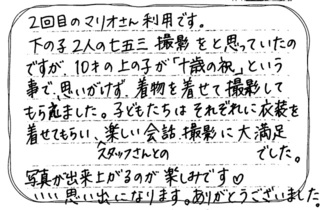 2回目のマリオさん利用です。
下の子2人の七五三撮影をと思っていたの
ですが、10才の上の子が「十歳の祝」という
事で、思いがけず、着物を着せて撮影して
もらえました。子どもたちはそれぞれに衣装を
着せてもらい、楽しい会話撮影に大満足
スタッフさんとの
でした。
写真が出来上がるのが楽しみです♡
いい思い出になります。ありがとうございました。